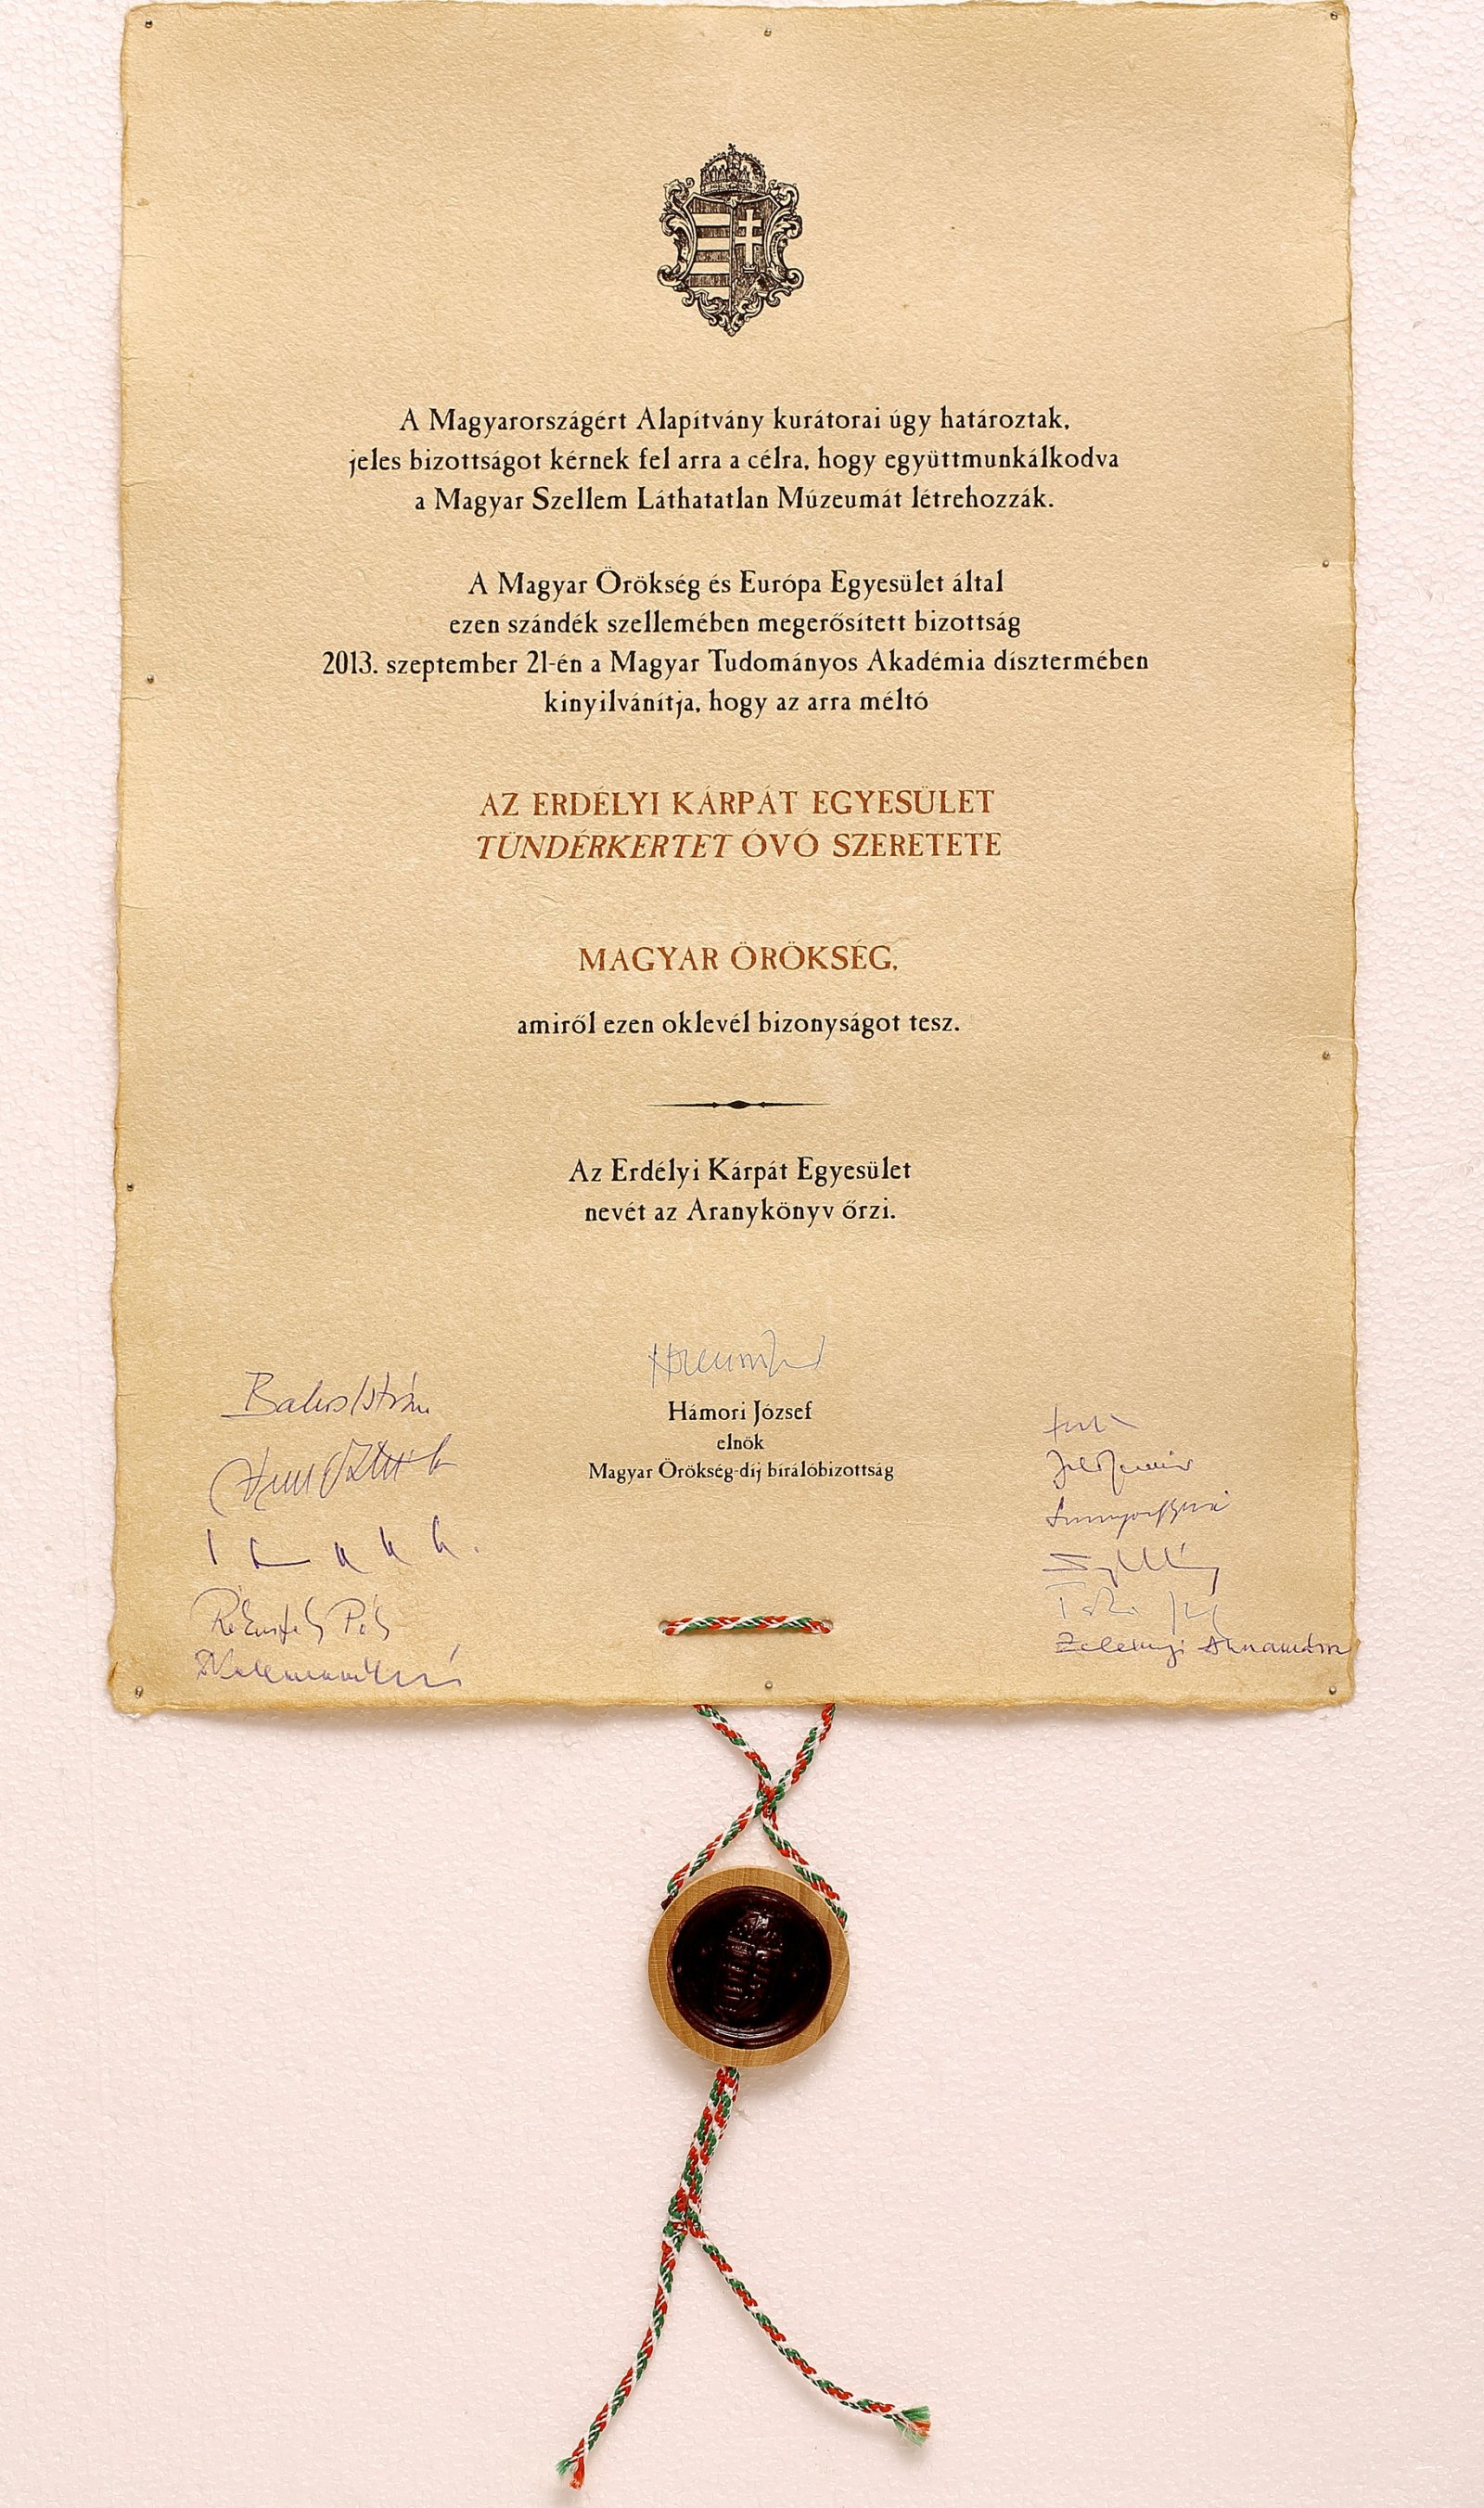 A Magyarországért Alapítvány kurátorai úgy határoztak,
jeles bizottságot kérnek fel arra a célra, hogy együttmunkálkodva
a Magyar Szellem Láthatatlan Múzeumát létrehozzák.
A Magyar Örökség és Európa Egyesület által
ezen szándék szellemében megerősített bizottság
2013. szeptember 21-én a Magyar Tudományos Akadémia dísztermében
kinyilvánítja, hogy az arra méltó
AZ ERDÉLYI KÁRPÁT EGYESÜLET
TÜNDÉRKERTET ÓVÓ SZERETETE
MAGYAR ÖRÖKSÉG,
amiről ezen oklevél bizonyságot tesz.
Az Erdélyi Kárpát Egyesület
nevét az Aranykönyv őrzi.
Hámori József
elnök
Magyar Örökség-díj bírálóbizottság